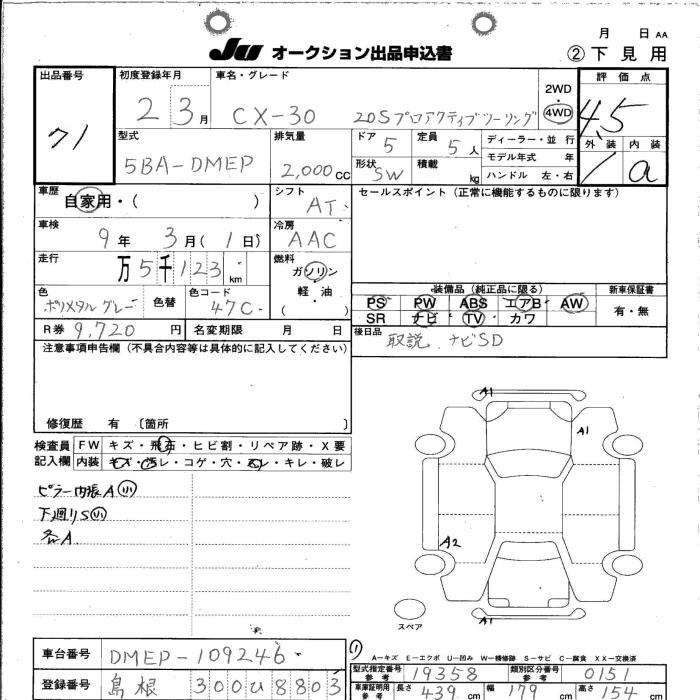 月 日 AA
JU オークション出品申込書 ②下見用
出品番号 初度登録年月 車名・グレード 評価点
71 2 3月 CX-30 20Sプロアクティブツーリング 2WD 4WD 4.5
型式 排気量 ドア 定員 ディーラー・並行 外装 内装
5BA-DMEP 2,000cc 5 5人 モデル年式 年 1 a
形状 積載 ハンドル 左・右
SW kg
車歴 シフト セールスポイント(正常に機能するものに限ります)
自家用・( ) AT
車検 冷房
9年 3月(1日) AAC
走行 燃料
万5千123km ガソリン
軽油
( )
色 色替 色コード 装備品(純正品に限る) 新車保証書
ポリメタルグレー 47C PS PW ABS エアB AW 有・無
SR ナビ TV カワ
R券 9,720円 名変期限 月 日 後日品 取説.ナビSD
注意事項申告欄(不具合内容等は具体的に記入してください)
修復歴 有 〔箇所 〕
検査員 FW キズ・飛石・ヒビ割・リペア跡・X要
記入欄 内装 キズ・汚レ・コゲ・穴・スレ・キレ・破レ
ピラー内張A小
下廻りS小
各A
A1
A1
A2
A1
スペア
A-キズ E-エクボ U-凹み W-補修跡 S-サビ C-腐食 XX-交換済
車台番号 DMEP-109246 型式指定番号 参考 19358 類別区分番号 参考 0151
登録番号 島根 300 8803 車庫証明用 参考 長さ 439cm 幅 179cm 高さ 154cm